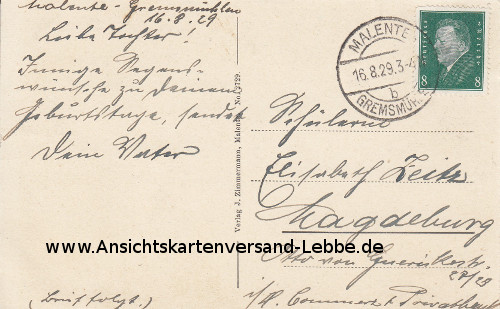 Malente - Gremsmühlen
16.8.29
Liebe Tochter!
Innige Segens-
wünsche zu Deinem
Geburtstage, sendet
Dein Vater
(Brief folgt.)
Verlag J. Zimmermann, Malente. No. 2729.
MALENTE
16.8.29.3-4
b
GREMSMÜHLEN
8 8
Schülerin
Elisabeth Zeitz
Magdeburg
Otto von Guerickestr.
27/28
i/H. Commerz & Privatbank
www.Ansichtskartenversand-Lebbe.de